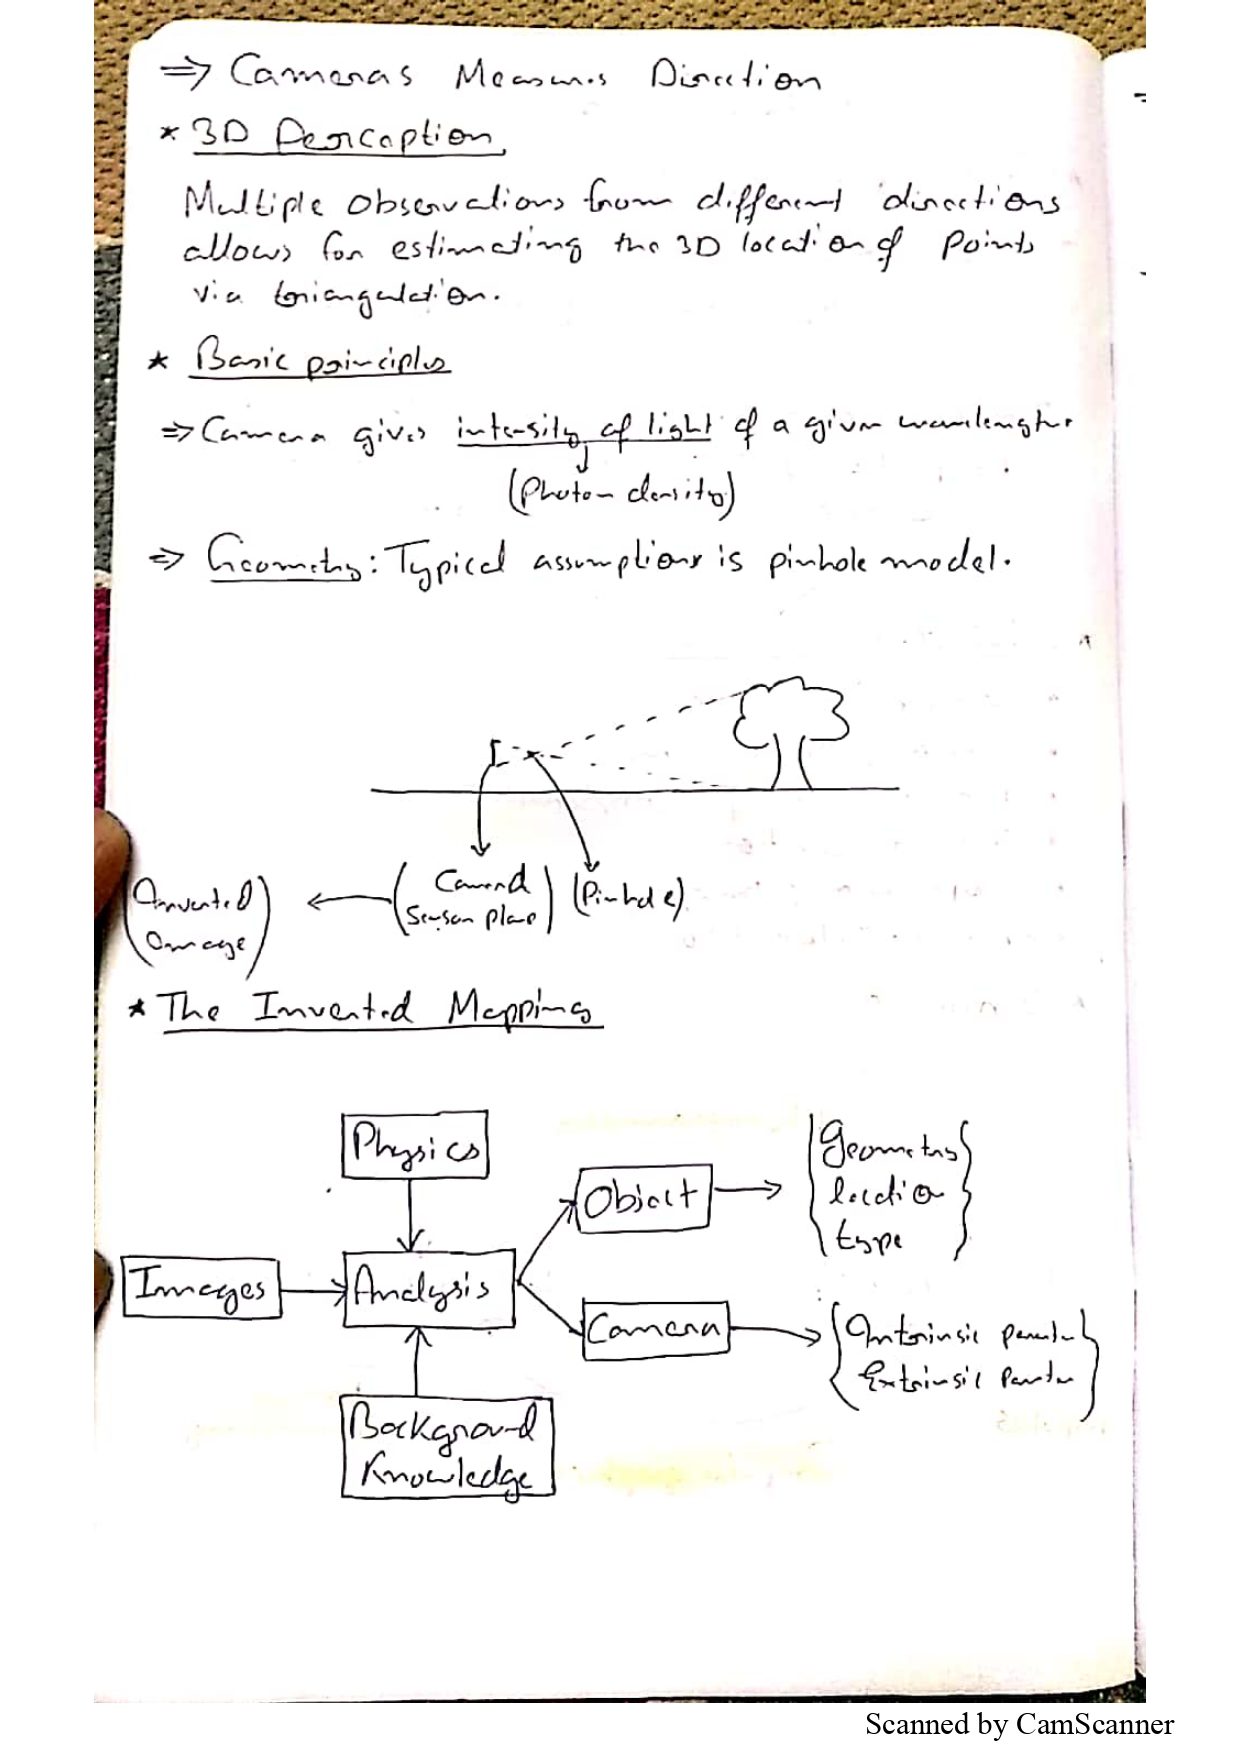 ⇒ Cameras Measures Direction
* 3D Perception
Multiple observations from different directions
allows for estimating the 3D location of points
via triangulation.
* Basic principles
⇒ Camera gives intensity of light of a given wavelengths
(Photon density)
⇒ Geometry: Typical assumptions is pinhole model.
(Camera Sensor plane) (Pinhole)
(Inverted Image)
* The Inverted Mapping
Physics
Object
Geometry
location
type
Images
Analysis
Camera
Intrinsic
Extrinsic
Background
Knowledge
Scanned by CamScanner